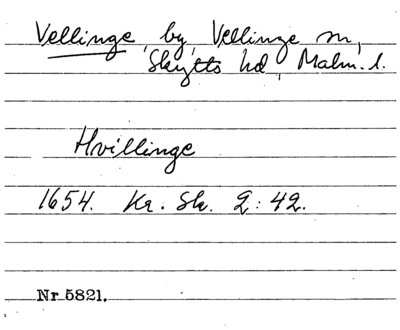 Vellinge, by, Vellinge sn,
Skytts hd, Malm. l.
Hvillinge
1654. Kr. Sk. 2:42.
Nr 5821.